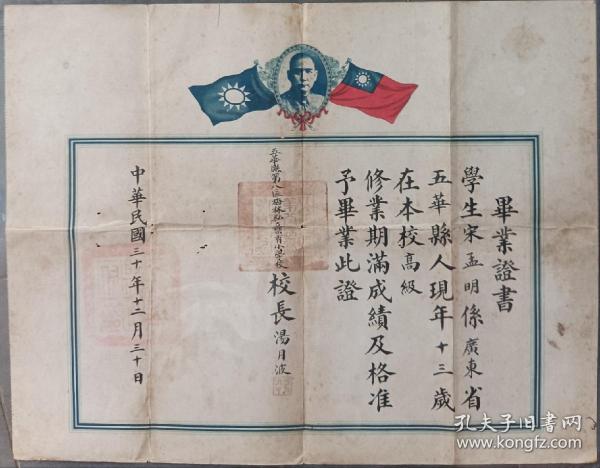 畢業證書
學生宋孟明係廣東省
五華縣人現年十三歲
在本校高級
修業期滿成績及格准
予畢業此證
校長湯月波
中華民國三十年十二月三十日
孔夫子旧书网
www.kongfz.com